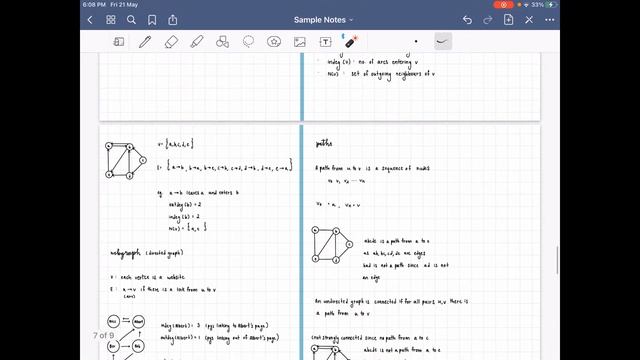 6:08 PM Fri 21 May
33%
Sample Notes
indeg(v) : no. of arcs entering v
N(v) : set of outgoing neighbours of v
V = {a,b,c,d,e}
E = {a→b, b→a, b→e, c→b, c→d, d→b, d→e, e→a}
eg. a→b leaves a and enters b
outdeg(b) = 2
indeg(b) = 2
N(v) = {a,e}
webgraph (directed graph)
V : each vertex is a website
E : u→v if there is a link from u to v
(arc)
indeg(Abort) = 3 (pgs linking to Abort's page)
outdeg(Abort) = 1 (pgs linking out of Abort's page)
7 of 9
paths
A path from u to v is a sequence of nodes
v₀ v₁ v₂ ... vₖ
v₀ = u, vₖ = v
abcde is a path from a to e
as ab, bc, cd, de are edges
bad is not a path since ad is not
an edge
An undirected graph is connected if for all pairs u,v there is
a path from u to v
(not strongly connected since no path from a to c.
abcde is not a path from a to e